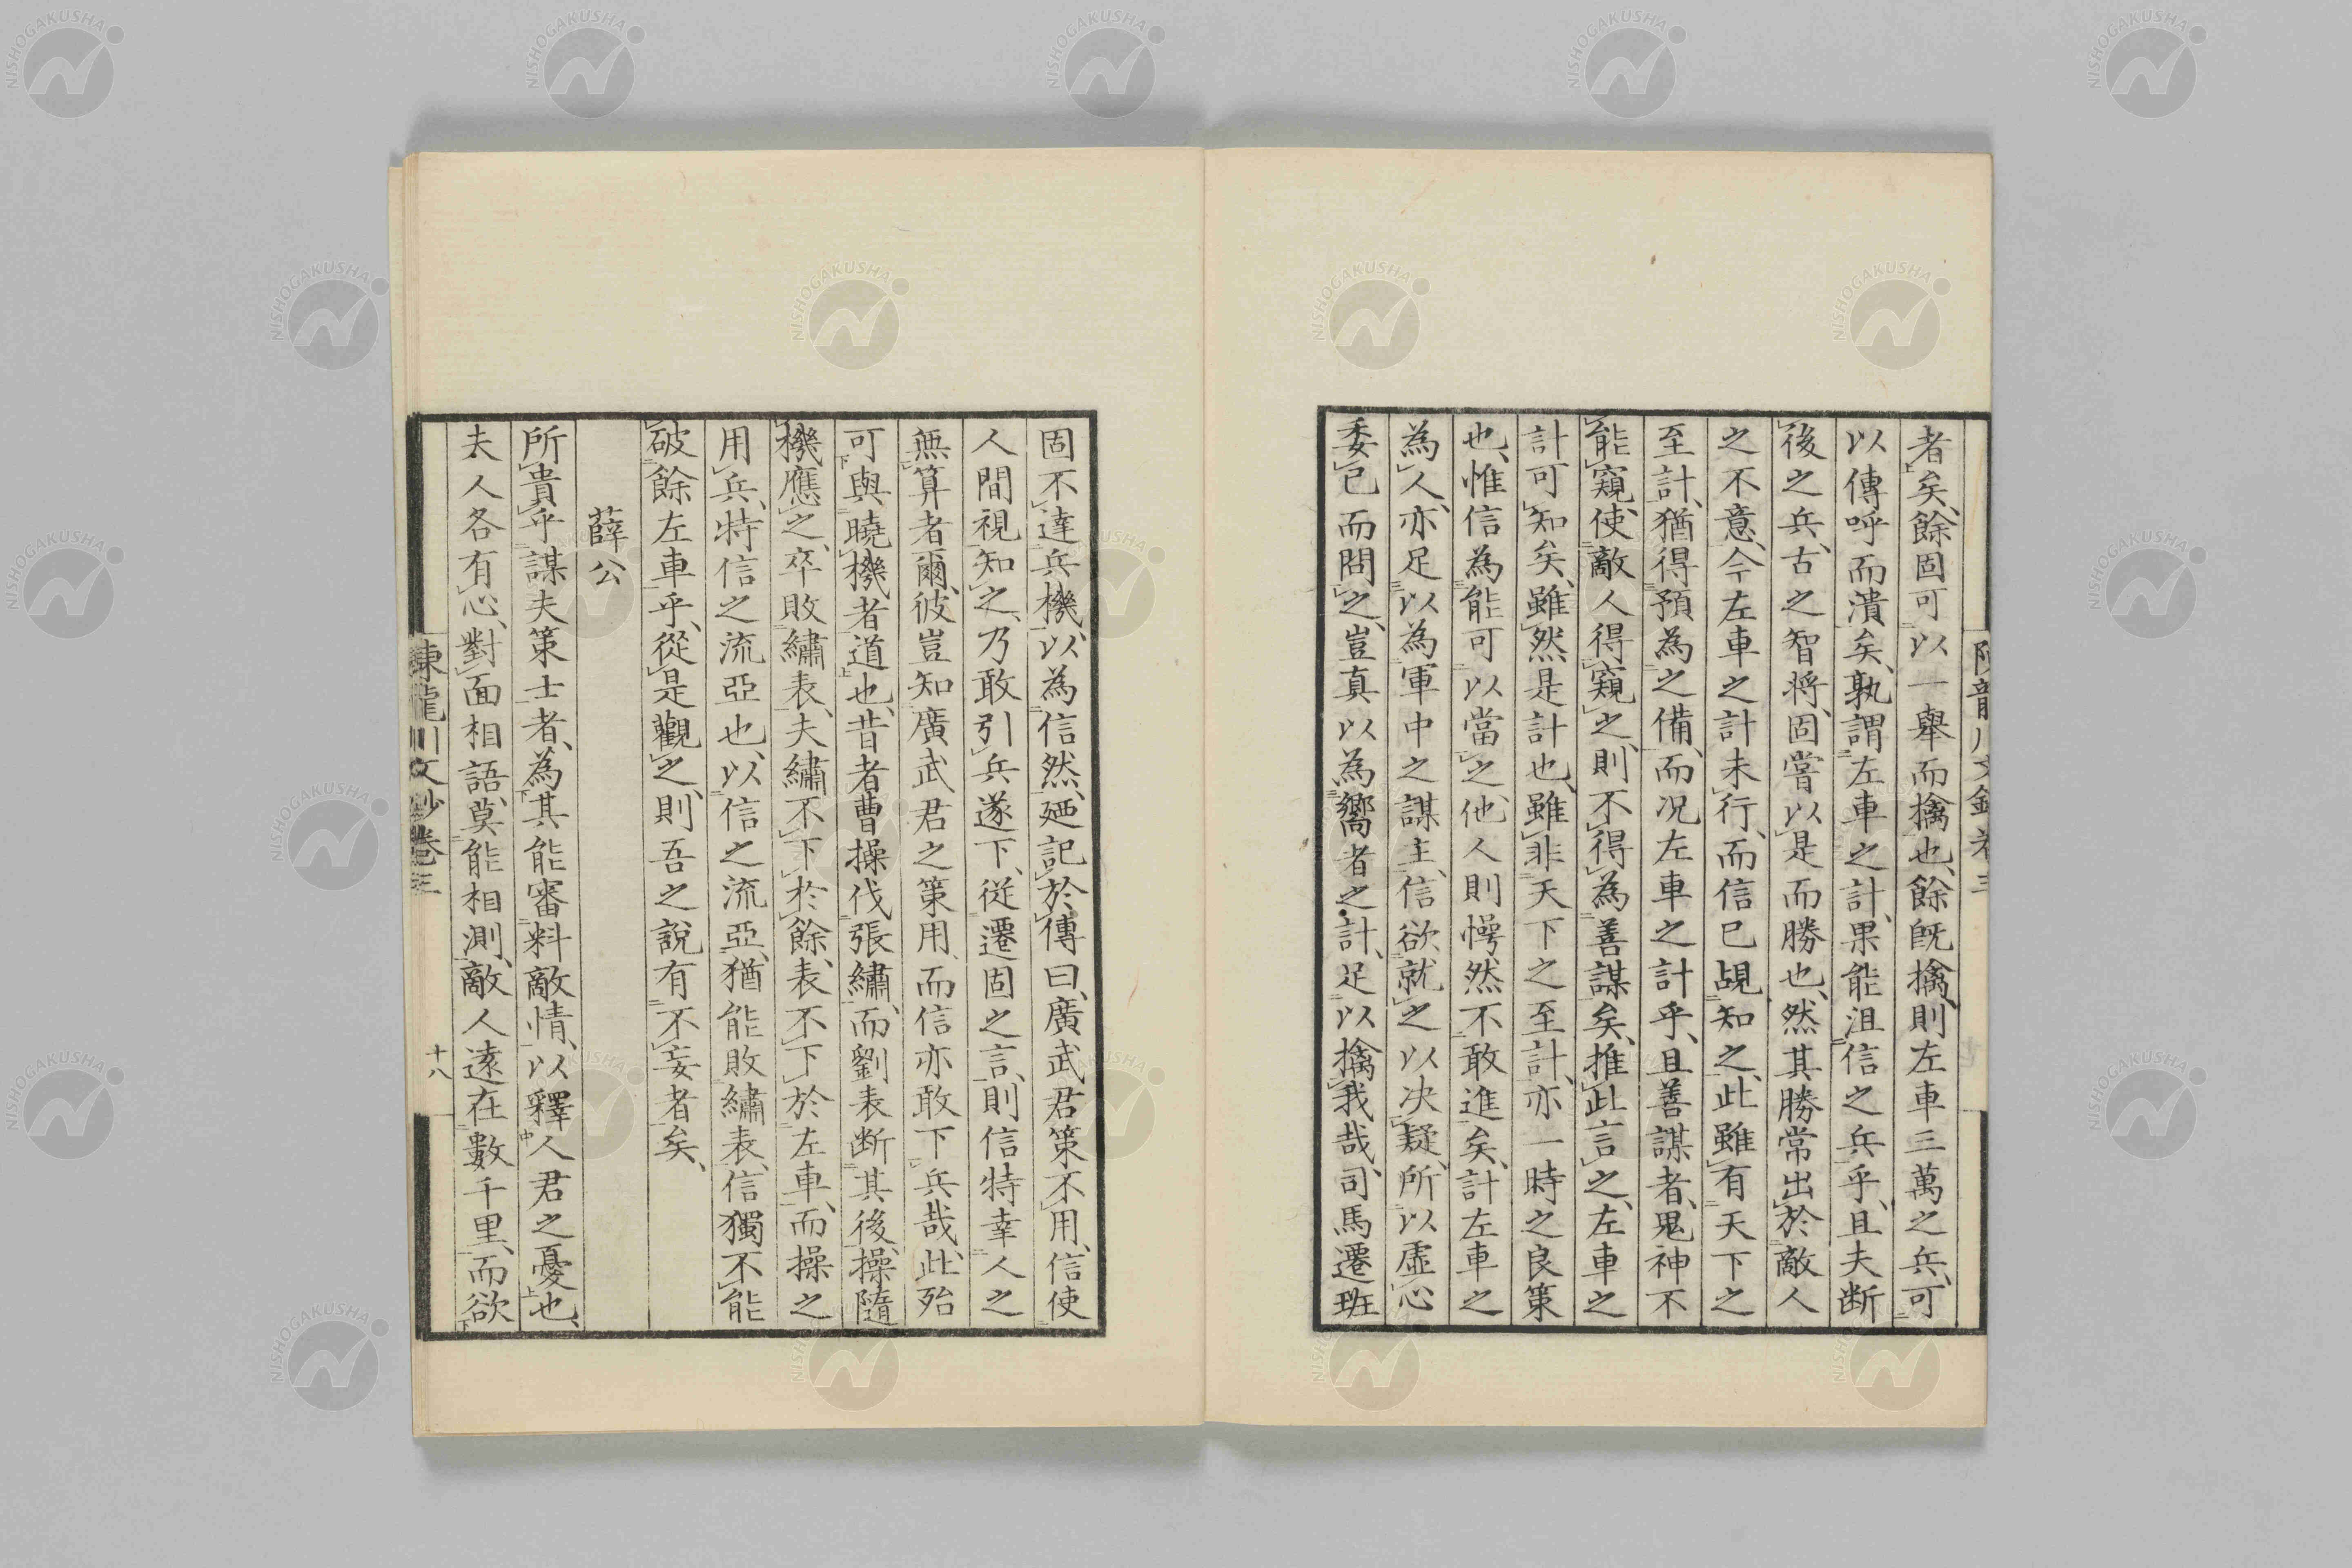 者矣、餘固可以一舉而擒也、餘旣擒、則左車三萬之兵、可
以傳呼而潰矣、孰謂左車之計、果能沮信之兵乎、且夫断
後之兵、古之智將、固嘗以是而勝也、然其勝常出於敵人
之不意、今左車之計未行、而信已覘知之、此雖有天下之
至計、猶得預為之備、而况左車之計乎、且善謀者、鬼神不
能窺、使敵人得窺之、則不得為善謀矣、推此言之、左車之
計可知矣、雖然是計也、雖非天下之至計、亦一時之良策
也、惟信為能可以當之、他人則愕然不敢進矣、計左車之
為人、亦足以為軍中之謀主、信欲就之以决疑、所以虛心
委已而問之、豈真以為嚮者之計、足以擒我哉、司馬遷班
固不達兵機、以為信然、廼記於傳曰、廣武君策不用、信使
人間視知之、乃敢引兵遂下、従遷固之言、則信特幸人之
無算者爾、彼豈知廣武君之策用、而信亦敢下兵哉、此殆
可與曉機者道也、昔者曹操伐張繡、而劉表断其後、操隨
機應之、卒敗繡表、夫繡不下於餘、表不下於左車、而操之
用兵、特信之流亞也、以信之流亞、猶能敗繡表、信獨不能
破餘左車乎、從是觀之、則吾之說有不妄者矣、
薛公
所貴乎謀夫策士者、為其能審料敵情、以釋人君之憂也、
夫人各有心、對面相語、莫能相測、敵人遠在數千里、而欲
陳龍川文鈔卷三
十八
NISHOGAKUSHA